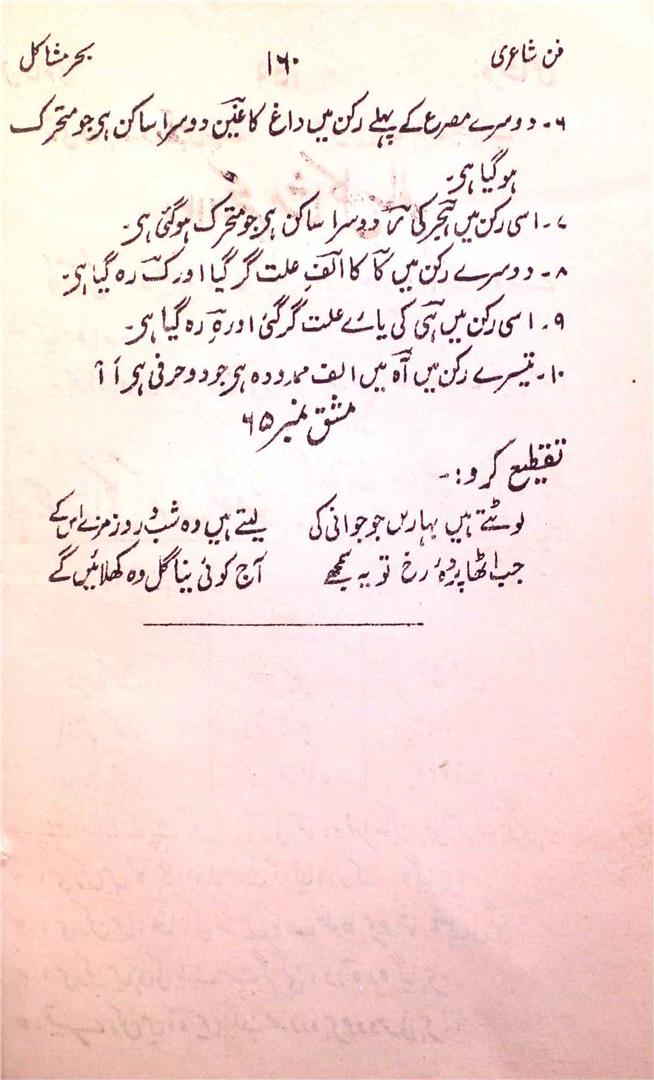 فن شاعری ۱۶۰ بحر مشاکل
۶۔ دوسرے مصرع کے پہلے رکن میں داغ کا غین دوسرا ساکن ہی جو متحرک
ہوگیا ہی۔
۷۔ اسی رکن میں ہجر کی ر دوسرا ساکن ہی جو متحرک ہوگئی ہی۔
۸۔ دوسرے رکن میں کا کا الف علت گر گیا اور ک رہ گیا ہی۔
۹۔ اسی رکن میں ہی کی یائے علت گر گئی اور ہ رہ گیا ہی۔
۱۰۔ تیسرے رکن میں آہ میں الف ممدودہ ہی جو دو حرفی ہی أ آ
مشق نمبر ۶۵
تقطیع کرو:۔
لوٹتے ہیں بہاریں جو جوانی کی لیتے ہیں وہ شب و روز مزے اس کے
جب اٹھا پردۂ رخ تو یہ سمجھے آج کوئی نیا گل وہ کھلائیں گے